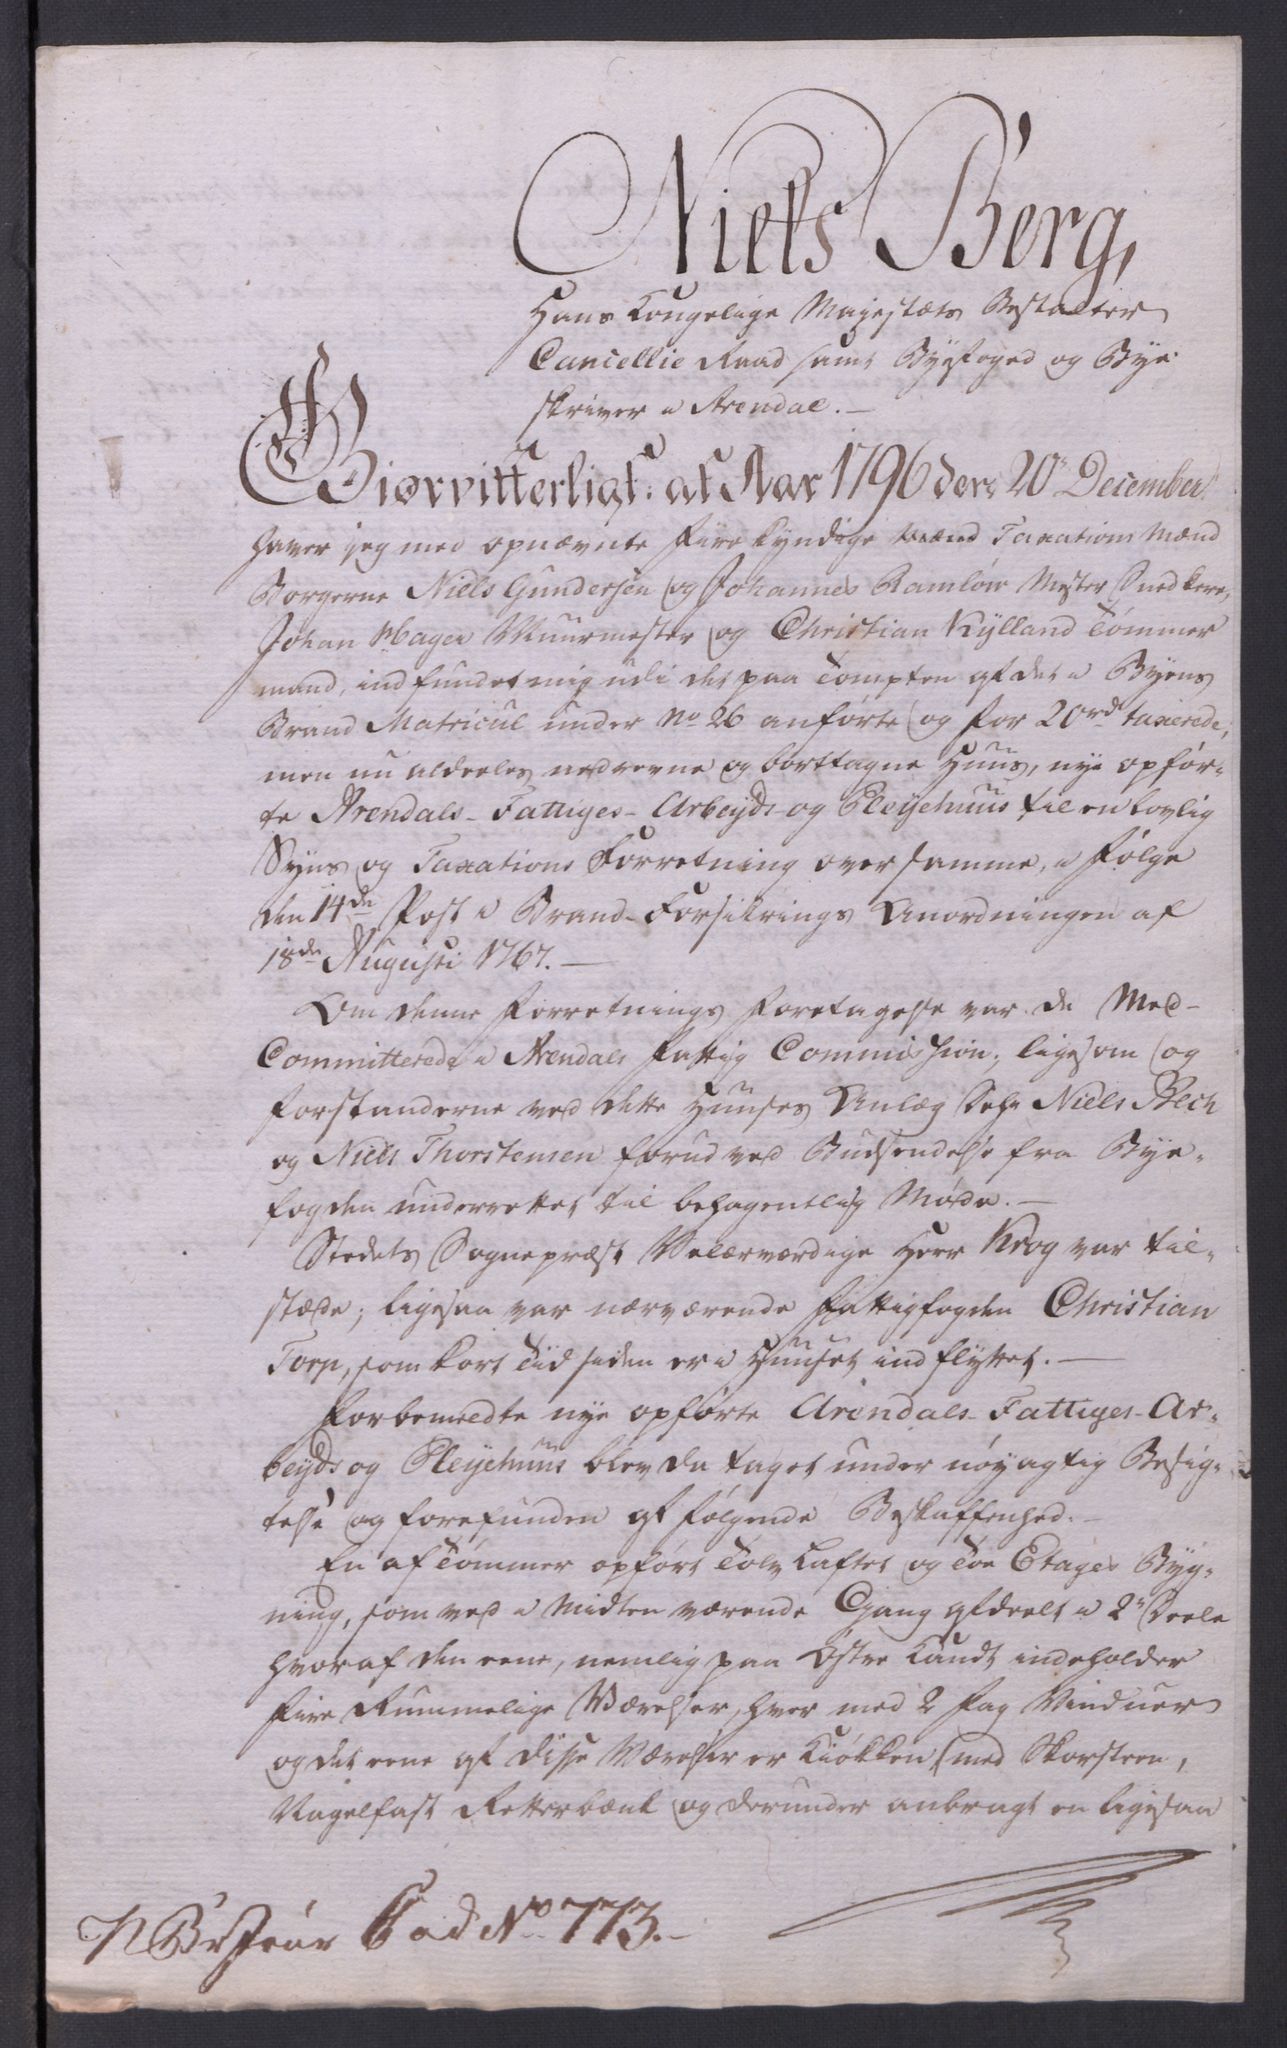 Niels Berg,
Hans Kongelige Mayestæts Bestalter
Cancellie Raad samt Byefoged og Bye-
skriver i Arendal. —
Giør vitterligt: at Aar 1796 den 20de December
haver jeg med opnævnte fiire kyndige Mænd Taxations Mænd
Borgerne Niels Gundersen og Johannes Ramlow Mester Snedkere,
Johan Hager Muurmester og Christian Kylland Tömmer
mand, indfundet mig udi det paa Tompten af det i Byens
Brand Matricul under No 26 anførte og for 20 rd taxerede,
men nu aldeeles nedrevne og borttagne Huus, nye opför-
te Arendals-Fattiges-Arbeyds- og Pleyehuus til en lovlig
Syns og Taxations Forretning over samme, i Følge
den 14de Post i Brand-Forsikrings Anordningen af
18de Augusti 1767. —
Om denne Forretnings Foretagelse var de Med-
Committerede i Arendals Fattig Commission, ligesom og
Forstanderne ved dette Huuses Anlæg Niels Bech
og Niels Thorstensen forud ved Budsendelse fra Bye-
fogden underrettet til behagentlig Møde. —
Stedets Sognepræst Velærværdige Herr Krog var til-
stæde; ligesaa var nærværende Fattigfogden Christian
Torp, som kort Tid siden er i Huuset indflyttet. —
Forbemeldte nye opførte Arendals-Fattiges-Ar-
beyds og Pleyehuus blev da taget under nöyagtig Besig-
telse og forefunden af følgende Beskaffenhed. —
En af Tömmer opført Tolv Laftet og Toe Etages Byg-
ning, som ved i Midten værende Gang afdeelt i 2de Deele
hvoraf den eene, nemlig paa Østre Kandt indeholder
fiire Rummelige Værelser, hver med 2 Fag Vinduer
og det eene af disse Værelser er Kiøkken, med Skorsteen,
Nagelfast Retterbænk og derunder anbragt en ligesaa
Cad No 773. —